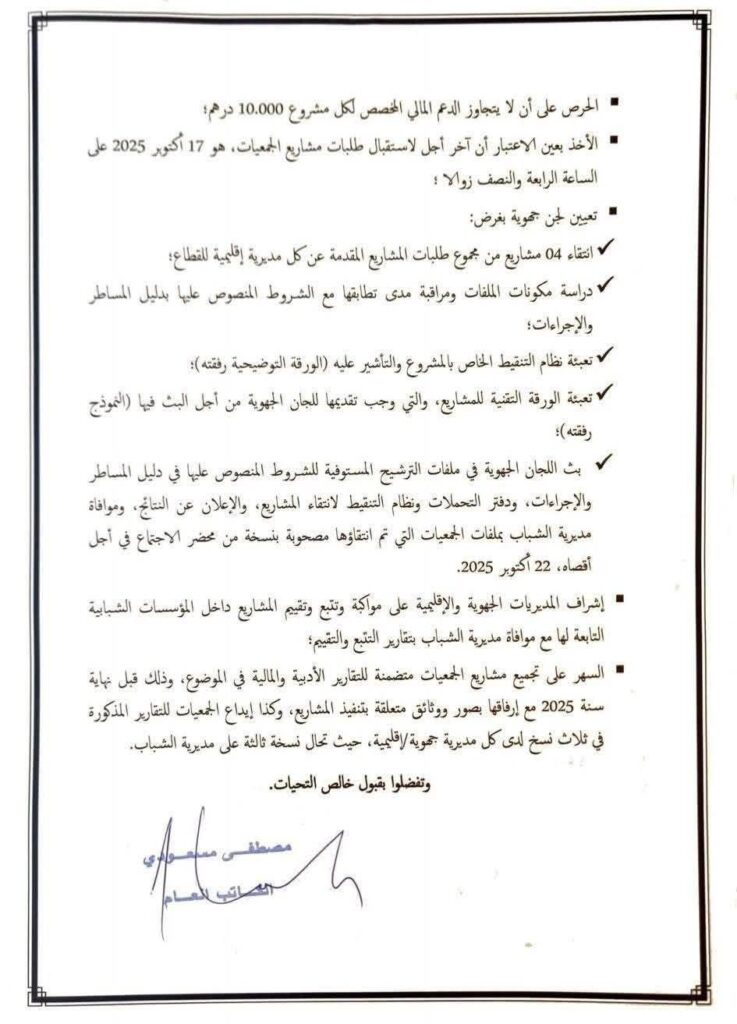 ▪ الحرص على أن لا يتجاوز الدعم المالي المخصص لكل مشروع 10.000 درهم؛
▪ الأخذ بعين الاعتبار أن آخر أجل لاستقبال طلبات مشاريع الجمعيات، هو 17 أكتوبر 2025 على
الساعة الرابعة والنصف زوالا ؛
▪ تعيين لجن جهوية بغرض:
✓ انتقاء 04 مشاريع من مجموع طلبات المشاريع المقدمة عن كل مديرية إقليمية للقطاع؛
✓ دراسة مكونات الملفات ومراقبة مدى تطابقها مع الشروط المنصوص عليها بدليل المساطر
والإجراءات؛
✓ تعبئة نظام التنقيط الخاص بالمشروع والتأشير عليه (الورقة التوضيحية رفقته)؛
✓ تعبئة الورقة التقنية للمشاريع، والتي وجب تقديمها للجان الجهوية من أجل البث فيها (النموذج
رفقته)؛
✓ بث اللجان الجهوية في ملفات الترشيح المستوفية للشروط المنصوص عليها في دليل المساطر
والإجراءات، ودفتر التحملات ونظام التنقيط لانتقاء المشاريع، والإعلان عن النتائج، وموافاة
مديرية الشباب بملفات الجمعيات التي تم انتقاؤها مصحوبة بنسخة من محضر الاجتماع في أجل
أقصاه، 22 أكتوبر 2025.
▪ إشراف المديريات الجهوية والإقليمية على مواكبة وتتبع وتقييم المشاريع داخل المؤسسات الشبابية
التابعة لها مع موافاة مديرية الشباب بتقارير التتبع والتقييم؛
▪ السهر على تجميع مشاريع الجمعيات متضمنة للتقارير الأدبية والمالية في الموضوع، وذلك قبل نهاية
سنة 2025 مع إرفاقها بصور ووثائق متعلقة بتنفيذ المشاريع، وكذا إيداع الجمعيات للتقارير المذكورة
في ثلاث نسخ لدى كل مديرية جهوية/إقليمية، حيث تحال نسخة ثالثة على مديرية الشباب.
وتفضلوا بقبول خالص التحيات.
مصطفى مسعودي
الكاتب العام